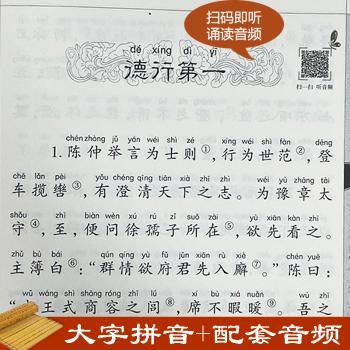 扫码即听
诵读音频
dé xíng dì yī
德行第一
扫一扫 听音频
chén zhòng jǔ yán wéi shì zé xíng wéi shì fàn dēng
1.陈仲举言为士则①，行为世范②，登
chē lǎn pèi yǒu chéng qīng tiān xià zhī zhì wéi yù zhāng tài
车揽辔③，有澄清天下之志。为豫章太
shǒu zhì biàn wèn xú rú zǐ suǒ zài yù xiān kàn zhī
守④，至，便问徐孺子所在⑤，欲先看之。
zhǔ bù bái qún qíng yù fǔ jūn xiān rù xiè chén yuē
主簿白⑥：“群情欲府君先入廨⑦。”陈曰：
wǔ wáng shì shāng róng zhī lǘ xí bù xiá nuǎn wú zhī
“武王式商容之闾⑧，席不暇暖⑨。吾之
大字拼音+配套音频